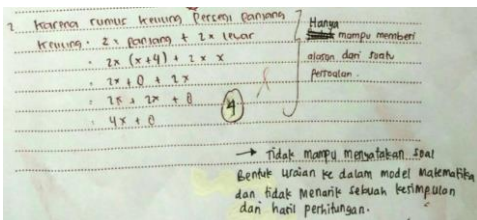 2 Karena rumus keliling persegi panjang
keliling = 2x panjang + 2x lebar
= 2x (x+4) + 2x x
= 2x + 8 + 2x
= 2x + 2x + 8
= 4x + 8
4
Hanya
mampu memberi
alasan dari suatu
Persoalan.
→ Tidak mampu menyatakan soal
Bentuk uraian ke dalam model matematika
dan tidak menarik sebuah kesimpulan
dari hasil perhitungan.